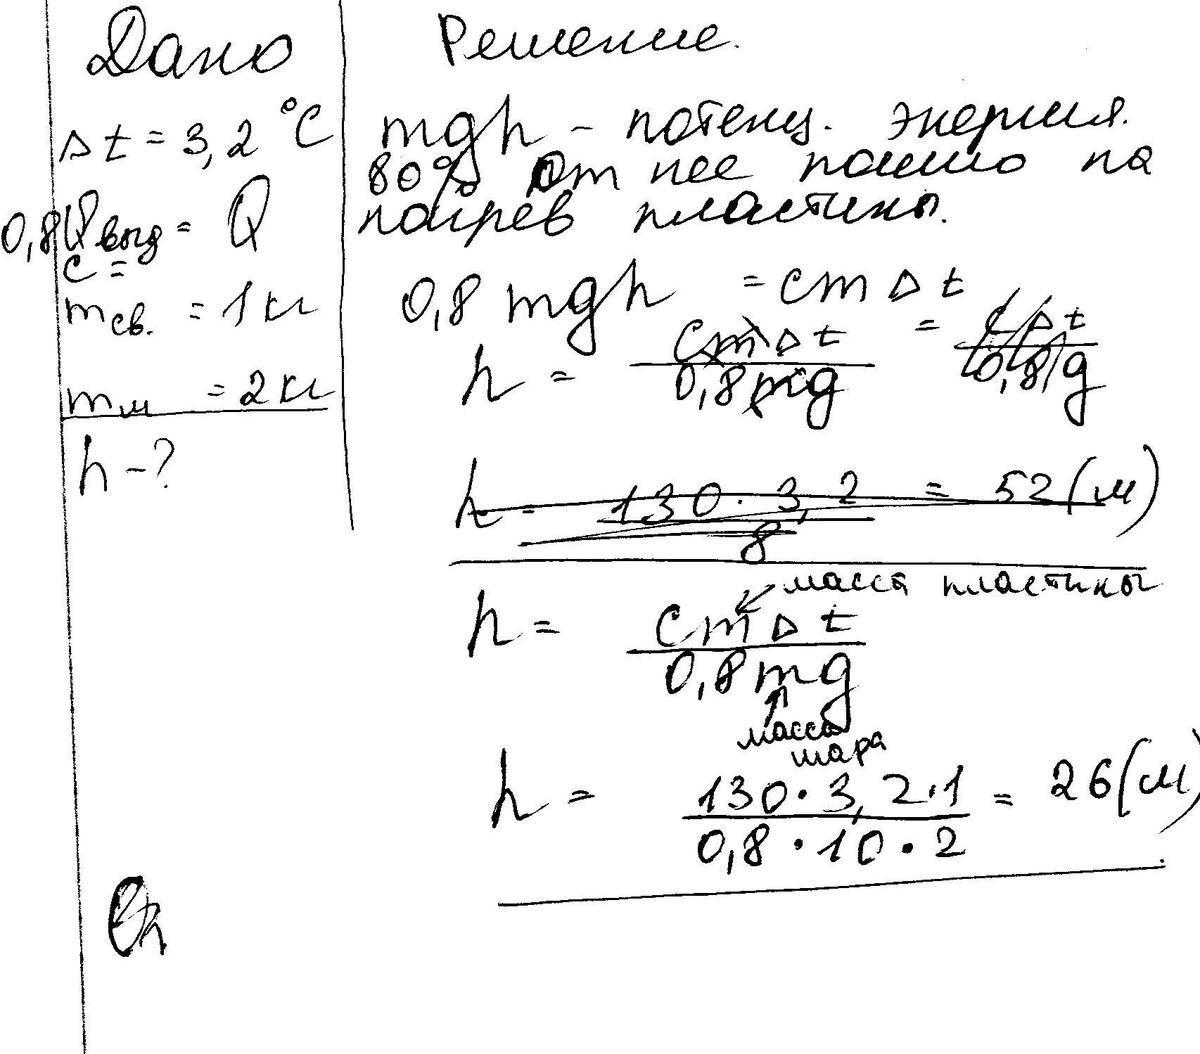 Дано
Δt = 3,2 °C
0,8Qвыд = Q
c =
mсв. = 1 кг
mм = 2 кг
h - ?
Решение.
mgh - потенц. энергия.
80% от нее пошло на
нагрев пластины.
0,8 mgh = cmΔt
h = cmΔt / 0,8mg = cΔt / 0,8g
h = 130·3,2 / 8 = 52 (м)
масса пластины
h = cmΔt / 0,8mg
масса
шара
h = 130·3,2·1 / 0,8·10·2 = 26 (м)